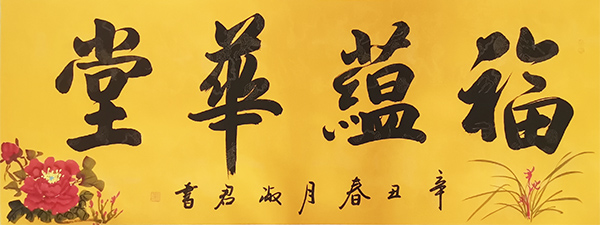 福蘊華堂
辛丑春月淑君書